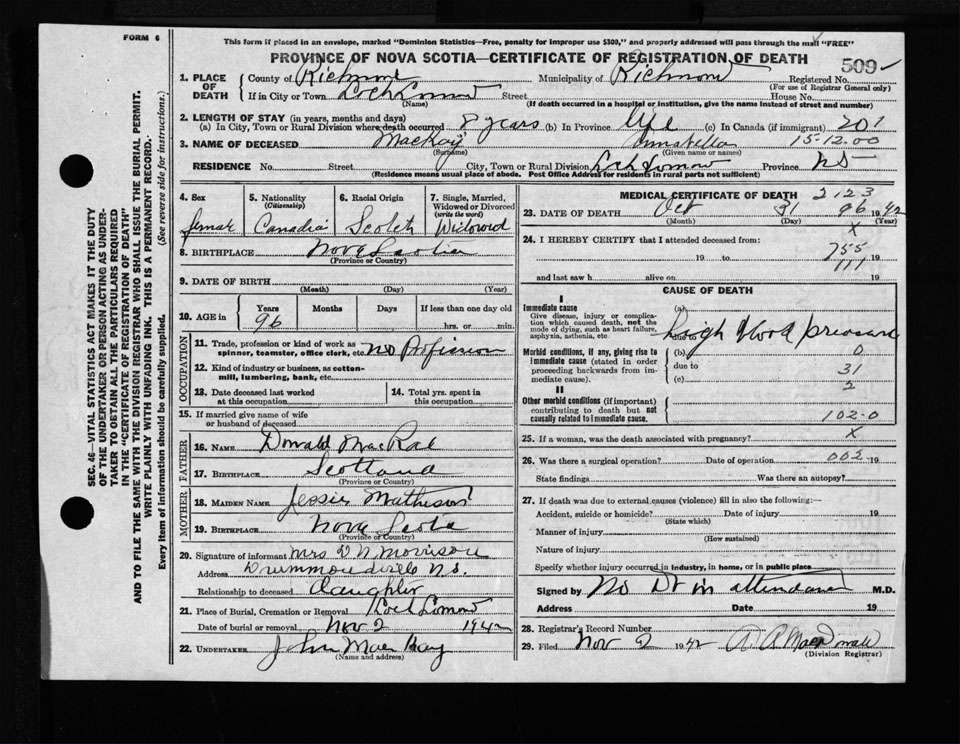 FORM 6
This form if placed in an envelope, marked "Dominion Statistics—Free, penalty for improper use $300," and properly addressed will pass through the mail "FREE"
PROVINCE OF NOVA SCOTIA—CERTIFICATE OF REGISTRATION OF DEATH
509
1. PLACE OF DEATH County of Richmond Municipality of Richmond Registered No.
(For use of Registrar General only)
If in City or Town Loch Lomond Street House No.
(Name) (If death occurred in a hospital or institution, give the name instead of street and number)
2. LENGTH OF STAY (in years, months and days)
(a) In City, Town or Rural Division where death occurred 8 years (b) In Province life (c) In Canada (if immigrant) 201
3. NAME OF DECEASED MacKay Annabella 15-12.00
(Surname) (Given name or names)
RESIDENCE No. Street City, Town or Rural Division Loch Lomond Province NS
(Residence means usual place of abode. Post Office Address for residents in rural parts not sufficient)
4. Sex
5. Nationality (Citizenship)
6. Racial Origin
7. Single, Married, Widowed or Divorced (write the word)
Canadia Scotch Widowed
8. BIRTHPLACE Nova Scotia
(Province or Country)
9. DATE OF BIRTH
(Month) (Day) (Year)
10. AGE in Years Months Days If less than one day old
96 hrs. or min.
OCCUPATION
11. Trade, profession or kind of work as spinner, teamster, office clerk, etc. no Profession
12. Kind of industry or business, as cotton-mill, lumbering, bank, etc.
13. Date deceased last worked at this occupation
14. Total yrs. spent in this occupation
15. If married give name of wife or husband of deceased
FATHER
16. NAME Donald MacRae
17. BIRTHPLACE Scotland
(Province or Country)
MOTHER
18. MAIDEN NAME Jessie Matheson
19. BIRTHPLACE Nova Scotia
(Province or Country)
20. Signature of informant Mrs D N Morrison
Address N.S.
Relationship to deceased daughter
21. Place of Burial, Cremation or Removal Loch Lomond
Date of burial or removal Nov 2 1942
22. UNDERTAKER John MacKay
(Name and address)
MEDICAL CERTIFICATE OF DEATH 2123
23. DATE OF DEATH Oct 31 96 1942
(Month) (Day) (Year)
X
24. I HEREBY CERTIFY that I attended deceased from:
19 to 755 19
111
and last saw h alive on 19
CAUSE OF DEATH
I
Immediate cause
Give disease, injury or complication which caused death, not the mode of dying, such as heart failure, asphyxia, asthenia, etc.
(a) high blood pressure
due to
Morbid conditions, if any, giving rise to immediate cause (stated in order proceeding backwards from immediate cause).
(b) 0
due to 31
(c) 2
II
Other morbid conditions (if important) contributing to death but not causally related to immediate cause.
102-0
25. If a woman, was the death associated with pregnancy? X
26. Was there a surgical operation? Date of operation 002 19
State findings Was there an autopsy?
27. If death was due to external causes (violence) fill in also the following:—
Accident, suicide or homicide? Date of injury 19
(State which)
Manner of injury
(How sustained)
Nature of injury
Specify whether injury occurred in industry, in home, or in public place
Signed by No Dr in attendance M.D.
Address Date 19
28. Registrar's Record Number
29. Filed Nov 2 1942
(Division Registrar)
SEC. 46—VITAL STATISTICS ACT MAKES IT THE DUTY
OF THE UNDERTAKER OR PERSON ACTING AS UNDER-
TAKER TO OBTAIN ALL THE PARTICULARS REQUIRED
IN THE "CERTIFICATE OF REGISTRATION OF DEATH"
AND TO FILE THE SAME WITH THE DIVISION REGISTRAR WHO SHALL ISSUE THE BURIAL PERMIT.
WRITE PLAINLY WITH UNFADING INK. THIS IS A PERMANENT RECORD.
Every item of information should be carefully supplied. (See reverse side for instructions.)